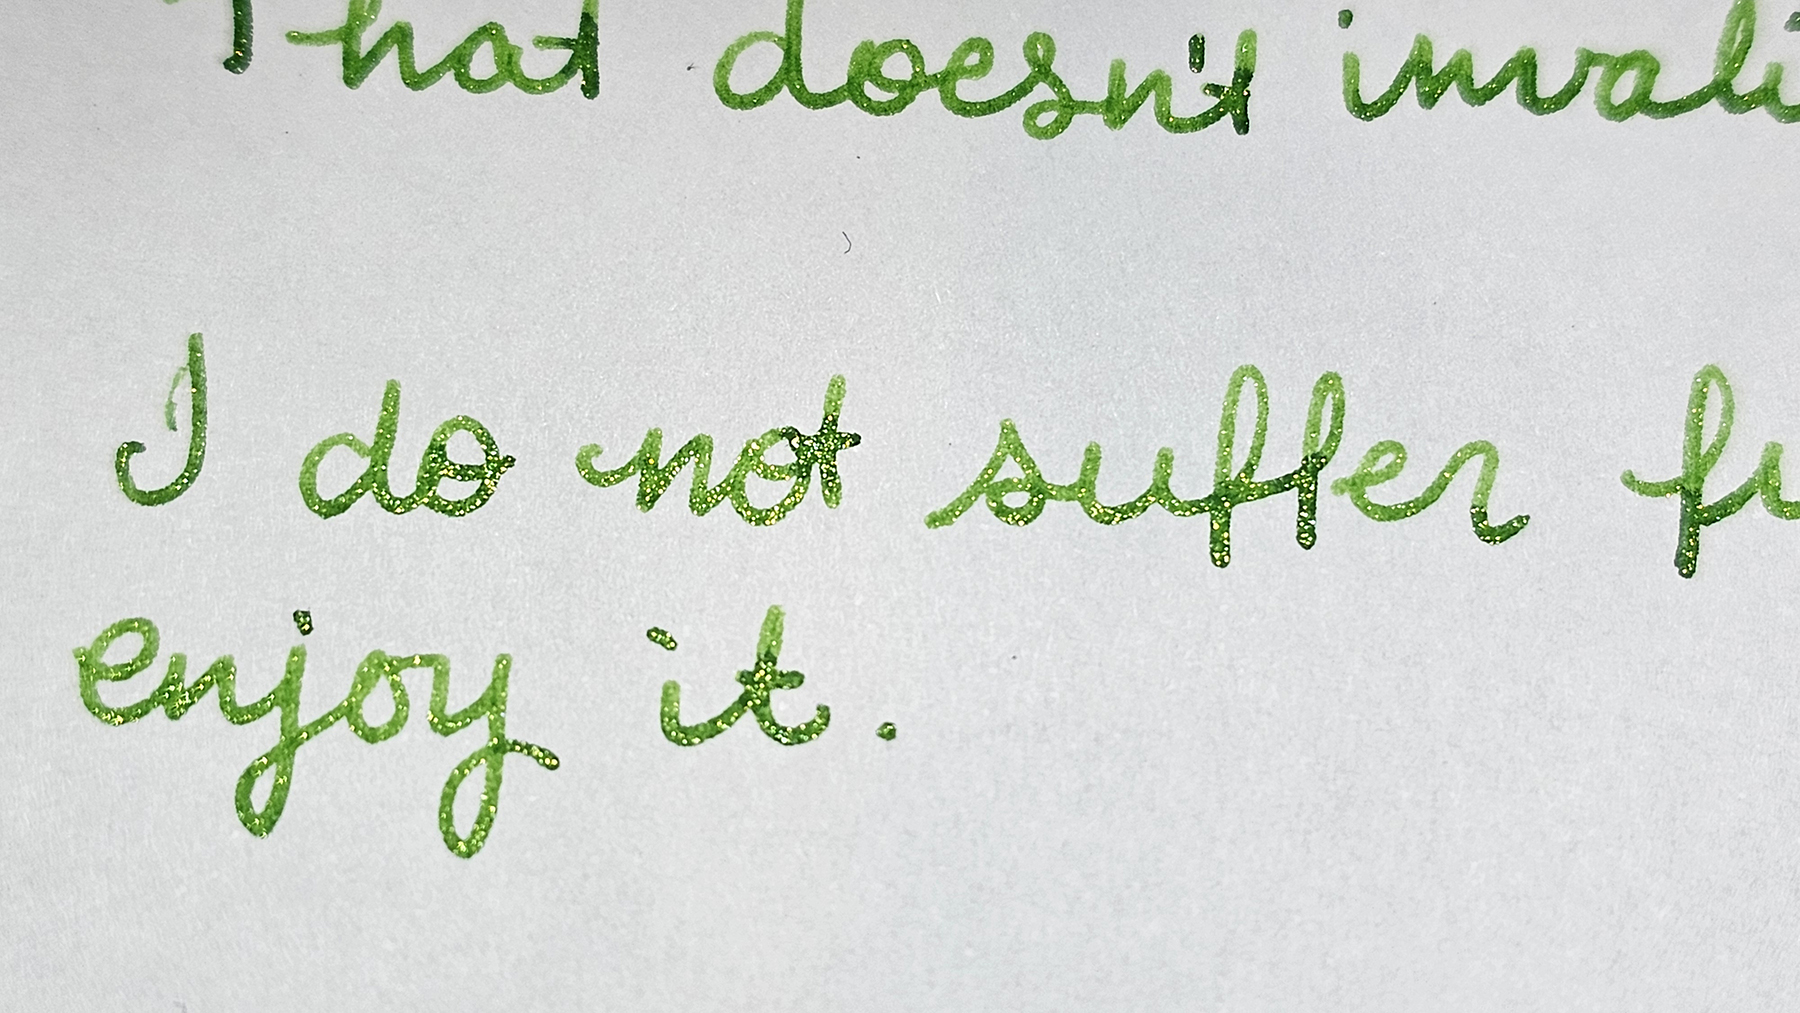 That doesn't invali
I do not suffer f
enjoy it.